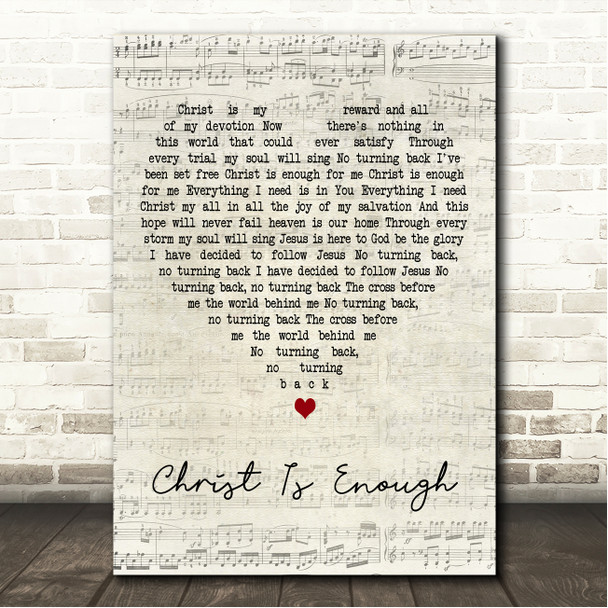 Christ is my reward and all
of my devotion Now there's nothing in
this world that could ever satisfy Through
every trial my soul will sing No turning back I've
been set free Christ is enough for me Christ is enough
for me Everything I need is in You Everything I need
Christ my all in all the joy of my salvation And this
hope will never fail heaven is our home Through every
storm my soul will sing Jesus is here to God be the glory
I have decided to follow Jesus No turning back,
no turning back I have decided to follow Jesus No
turning back, no turning back The cross before
me the world behind me No turning back,
no turning back The cross before
me the world behind me
No turning back,
no turning
back
Christ Is Enough